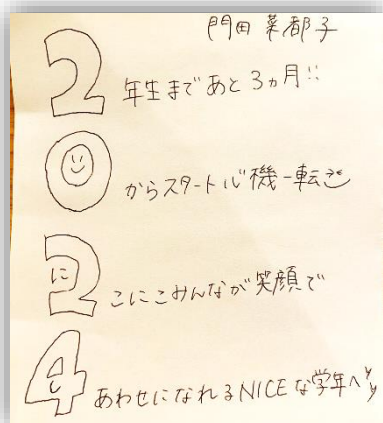 門田 菜都子
2年生まであと3ヵ月!!
0からスタート心機一転
2にこにこみんなが笑顔で
4しあわせになれるNICEな学年へ